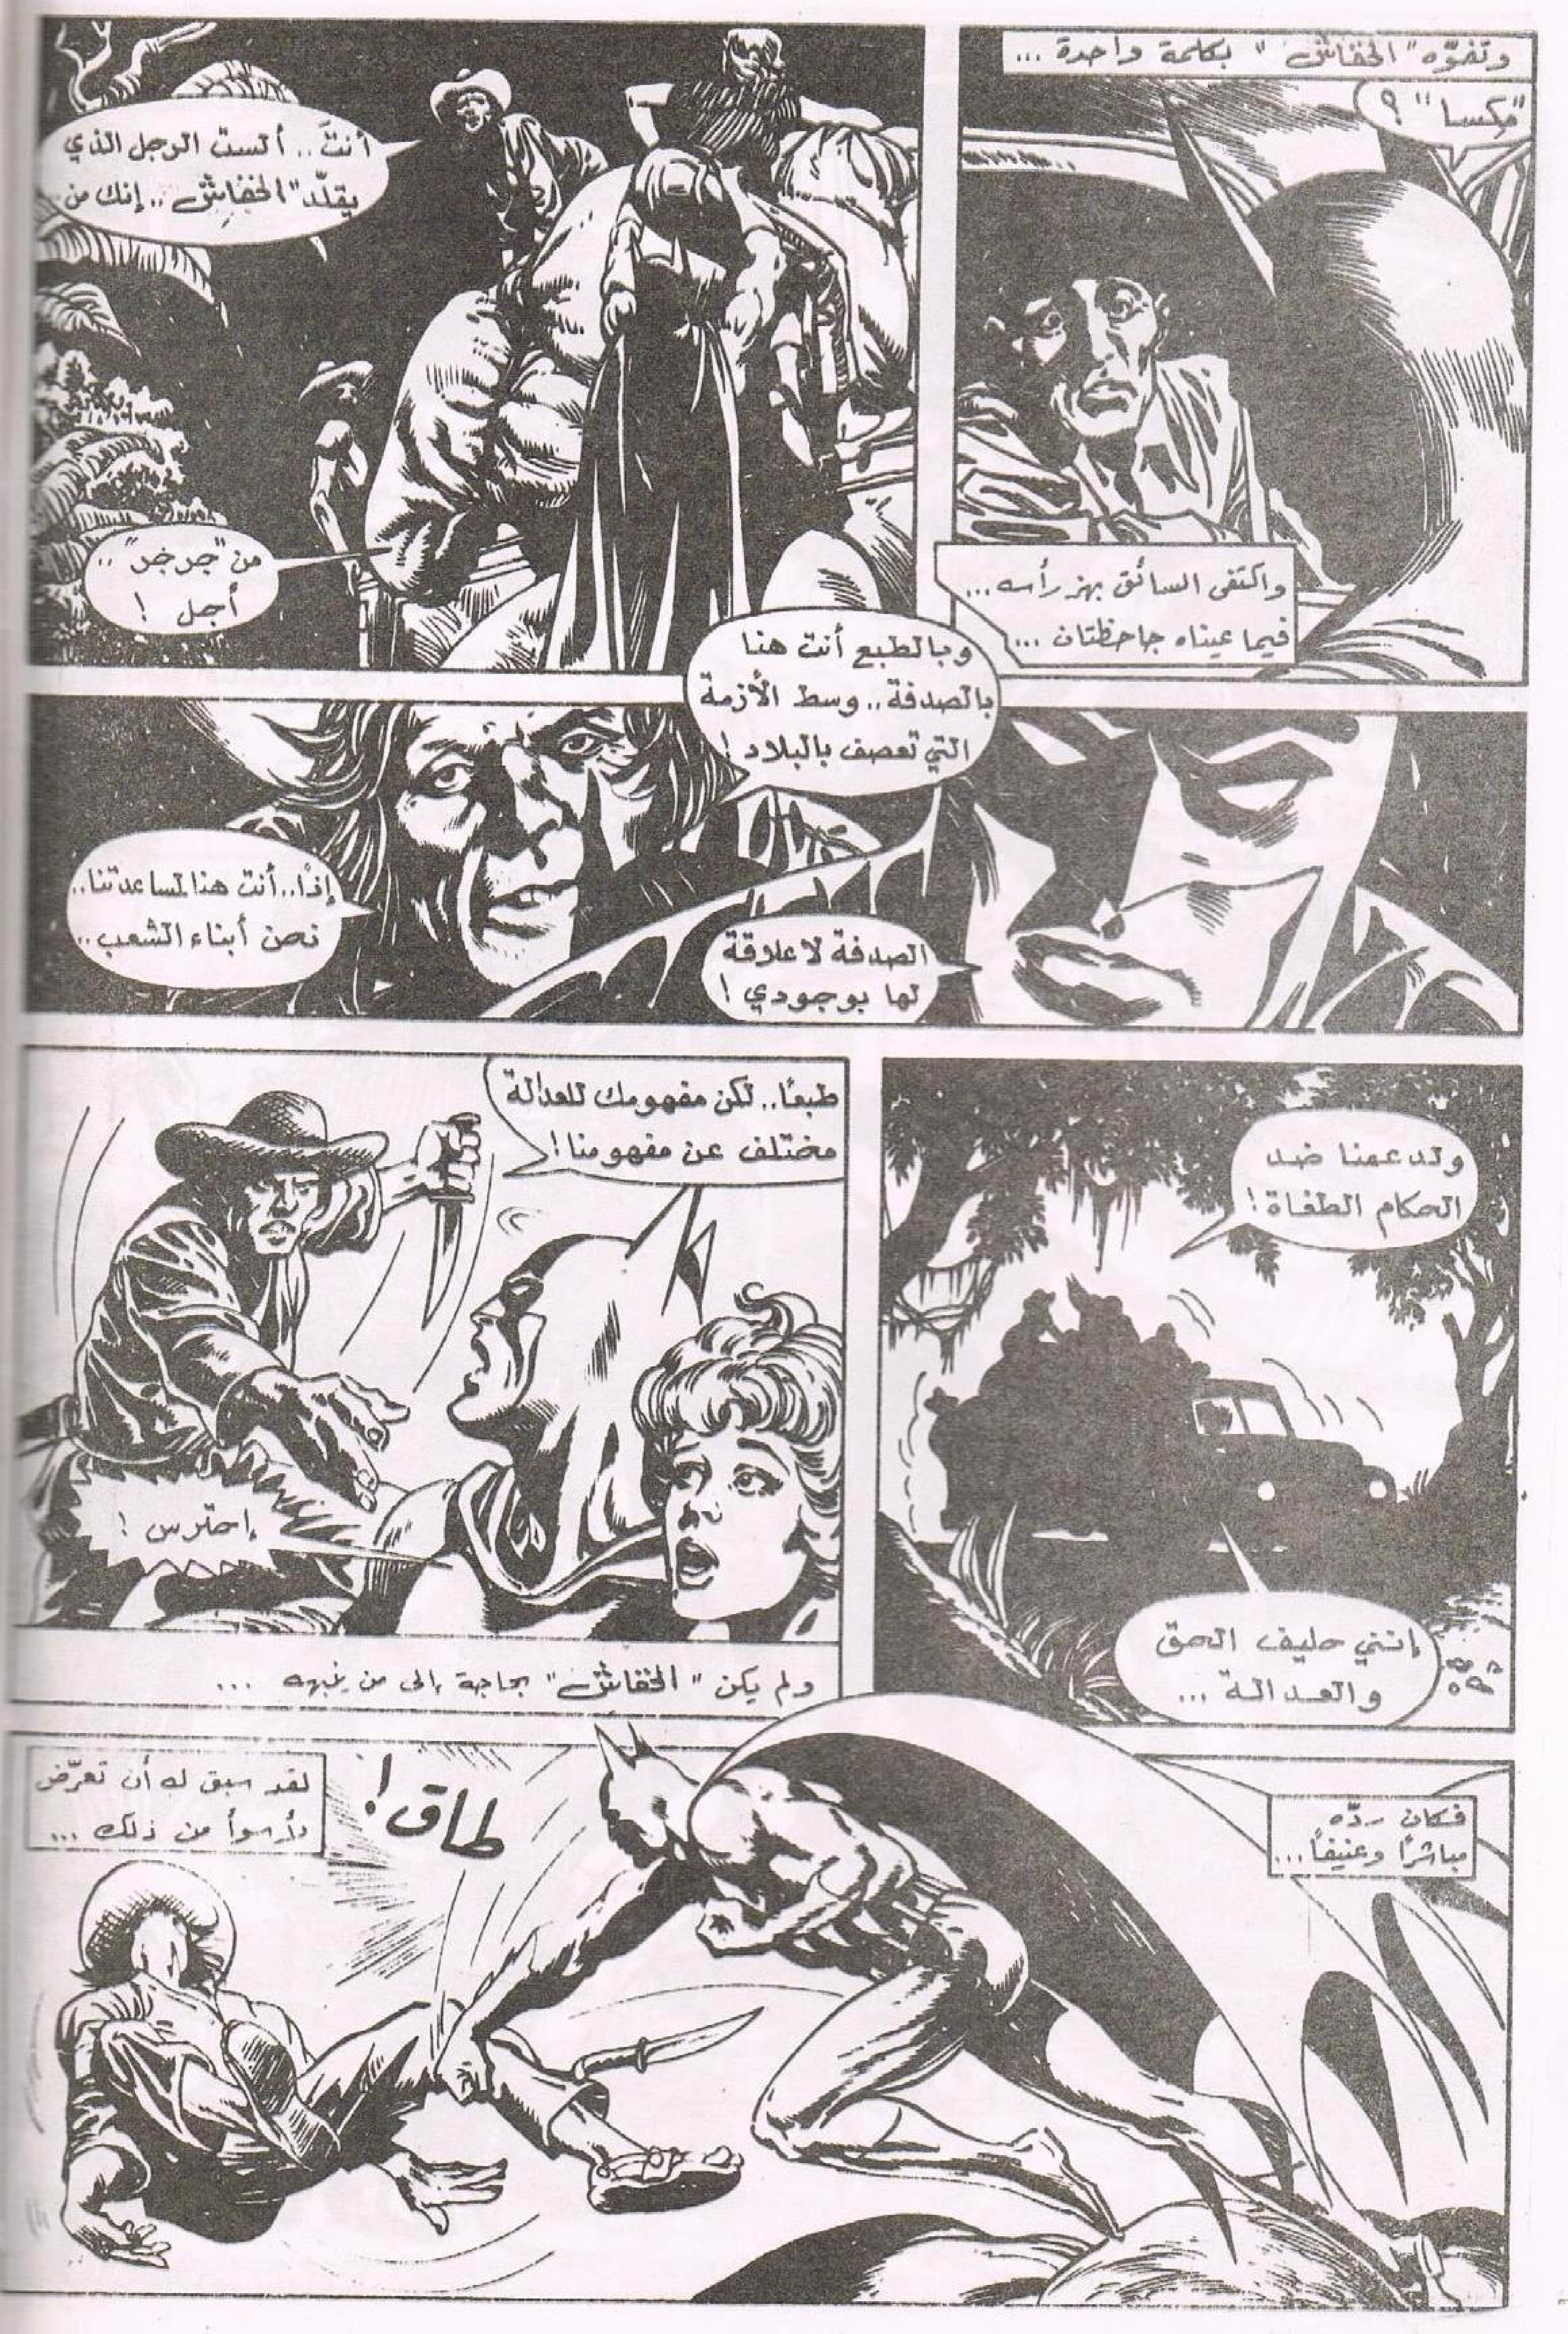 وتفوّه "الخفاش" بكلمة واحدة ...
"مكسا" ؟
واكتفى السائق بهز رأسه...
فيما عيناه جاحظتان ...
أنتَ.. ألست الرجل الذي
يقلّد "الخفاش".. إنك من..
من "جرجر"..
أجل !
وبالطبع أنت هنا
بالصدفة.. وسط الأزمة
التي تعصف بالبلاد !
الصدفة لا علاقة
لها بوجودي !
إذًا.. أنت هنا لمساعدتنا..
نحن أبناء الشعب..
ولدعمنا ضد
الحكام الطغاة !
إنني حليف الحق
والعدالة ...
طبعًا.. لكن مفهومك للعدالة
مختلف عن مفهومنا !
إحترس !
ولم يكن "الخفاش" بحاجة إلى من ينبهه ...
فكان ردّه
مباشرًا وعنيفًا...
طاق !
لقد سبق له أن تعرّض
لأسوأ من ذلك ...